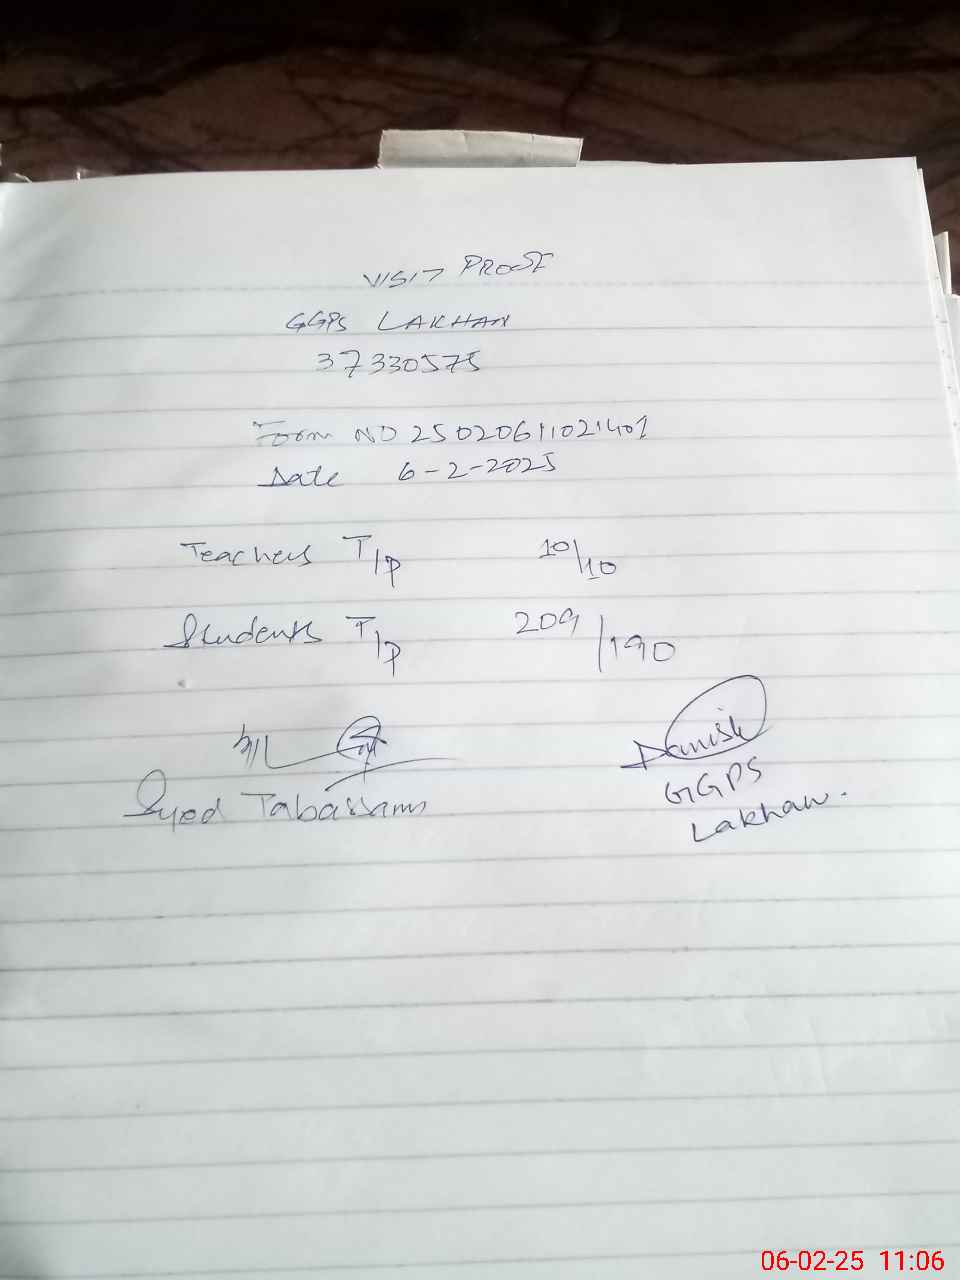 VISIT PROOF
GGPS LAKHAN
37330575
Form NO 25020611021401
Date 6-2-2025
Teachers T/P 10/10
Students T/P 209/190
Syed Tabassam
Danish
GGPS
Lakhan.
06-02-25 11:06